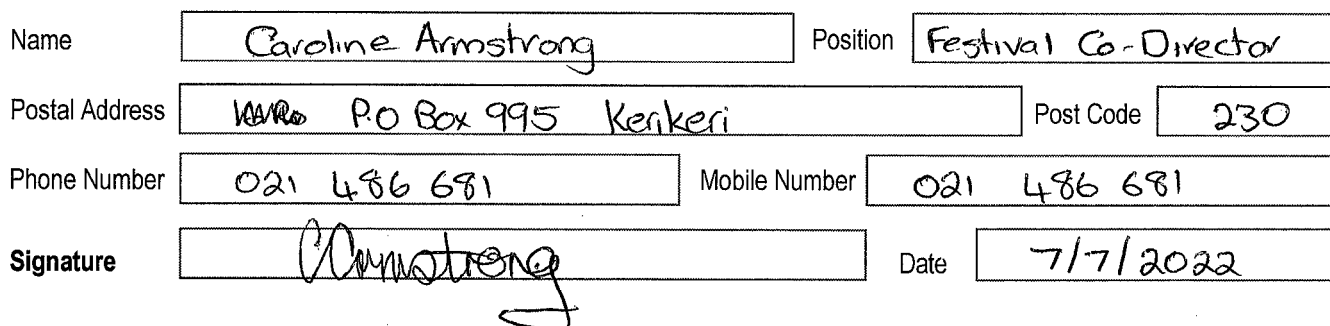 Name Caroline Armstrong Position Festival Co-Director
Postal Address P.O Box 995 Kerikeri Post Code 230
Phone Number 021 486 681 Mobile Number 021 486 681
Signature CArmstrong Date 7/7/2022